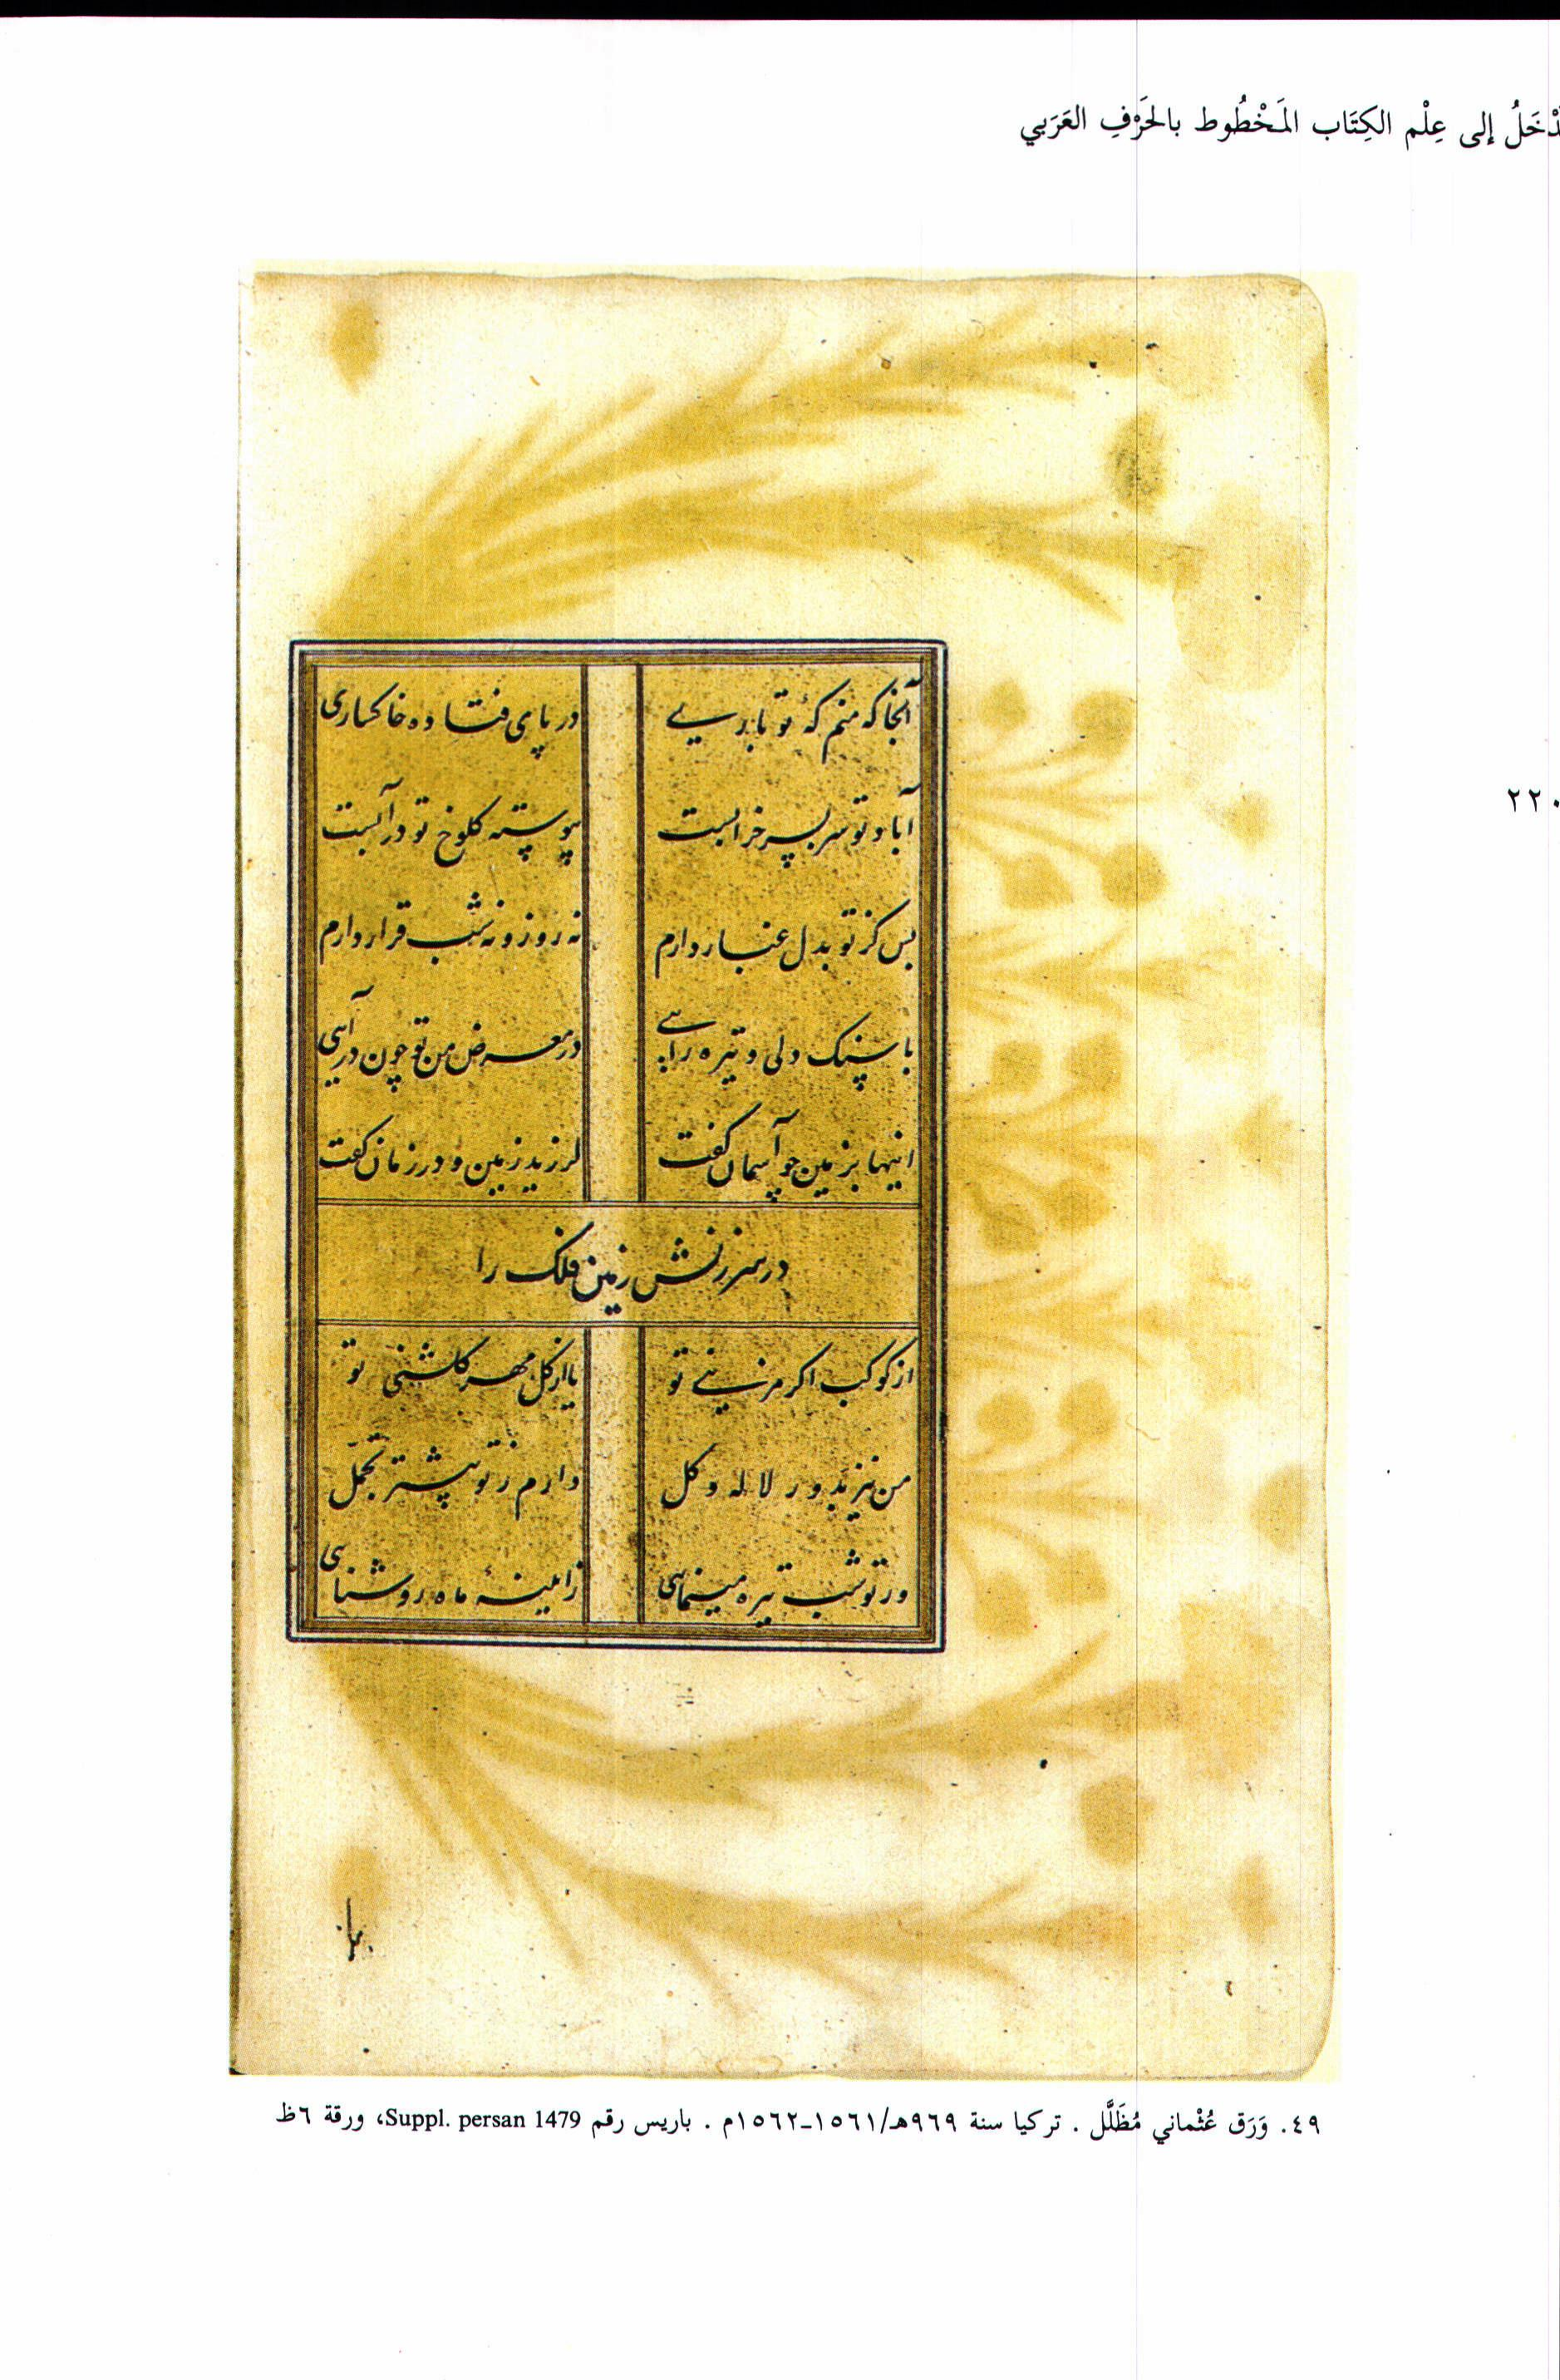 دْخَلُ إلى عِلْم الكِتَاب المَخْطُوط بالحَرْفِ العَرَبي
آنجا که منم که تو باری در پای فتاده خاکساری
آباد تو سر بسر خرابست پیوسته کلوخ تو در آبست
بس کز تو بدل غبار دارم نه روز و نه شب قرار دارم
با سنک دلی و تیره رایی در معرض من تو چون درآیی
اینها بزمین چو آسمان کفت لرزید زمین و در زمان کفت
در سرزنش زمین فلک را
از کوکب اکر مزینی تو یا از کل مهر کلشنی تو
من نیز بدور لاله و کل دارم ز تو بیشتر تجمّل
ور تو شب تیره مینمایی ز آیینهٔ ماه روشنایی
٢٢٠
٤٩. وَرَق عُثْماني مُظَلَّل . تركيا سنة ٩٦٩هـ/١٥٦١-١٥٦٢م . باريس رقم Suppl. persan 1479، ورقة ٦ظ